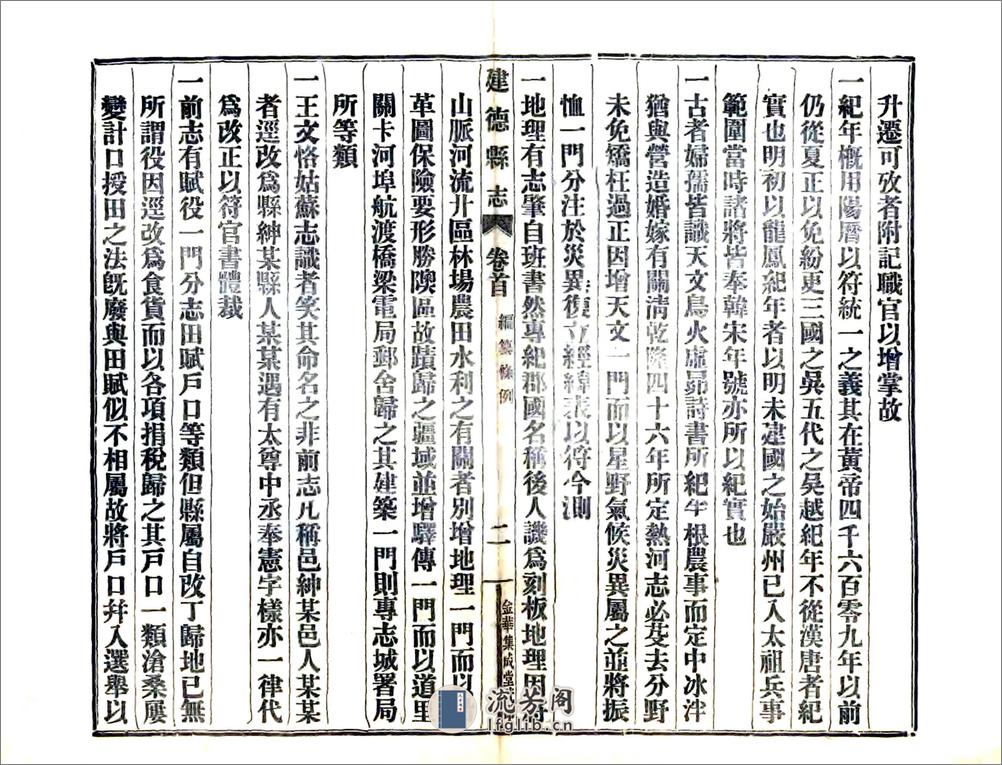 升遷可攷者附記職官以增掌故
一紀年槪用陽曆以符統一之義其在黃帝四千六百零九年以前
仍從夏正以免紛更三國之吳五代之吳越紀年不從漢唐者紀
實也明初以龍鳳紀年者以明未建國之始嚴州已入太祖兵事
範圍當時諸將皆奉韓宋年號亦所以紀實也
一古者婦孺皆識天文鳥火虛昴詩書所紀根農事而定中冰泮
猶與營造婚嫁有關淸乾隆四十六年所定熱河志必芟去分野
未免矯枉過正因增天文一門而以星野氣候災異屬之並將振
恤一門分注於災異復立經緯表以符今測
一地理有志肇自班書然專紀郡國名稱後人譏爲刻板地理因將
山脈河流廾區林場農田水利之有關者別增地理一門而以
革圖保險要形勝隩區故蹟歸之疆域並增驛傳一門而以道里
關卡河埠航渡橋梁電局郵舍歸之其建築一門則專志城署局
所等類
一王文恪姑蘇志識者笑其命名之非前志凡稱邑紳某邑人某某
者逕改爲縣紳某縣人某某遇有太尊中丞奉憲字樣亦一律代
爲改正以符官書體裁
一前志有賦役一門分志田賦戶口等類但縣屬自改丁歸地已無
所謂役因逕改爲食貨而以各項捐稅歸之其戶口一類滄桑屢
變計口授田之法旣廢與田賦似不相屬故將戶口幷入選舉以
建德縣志
卷首
編纂條例
二
金華集成堂
流芳阁
lfglib.cn